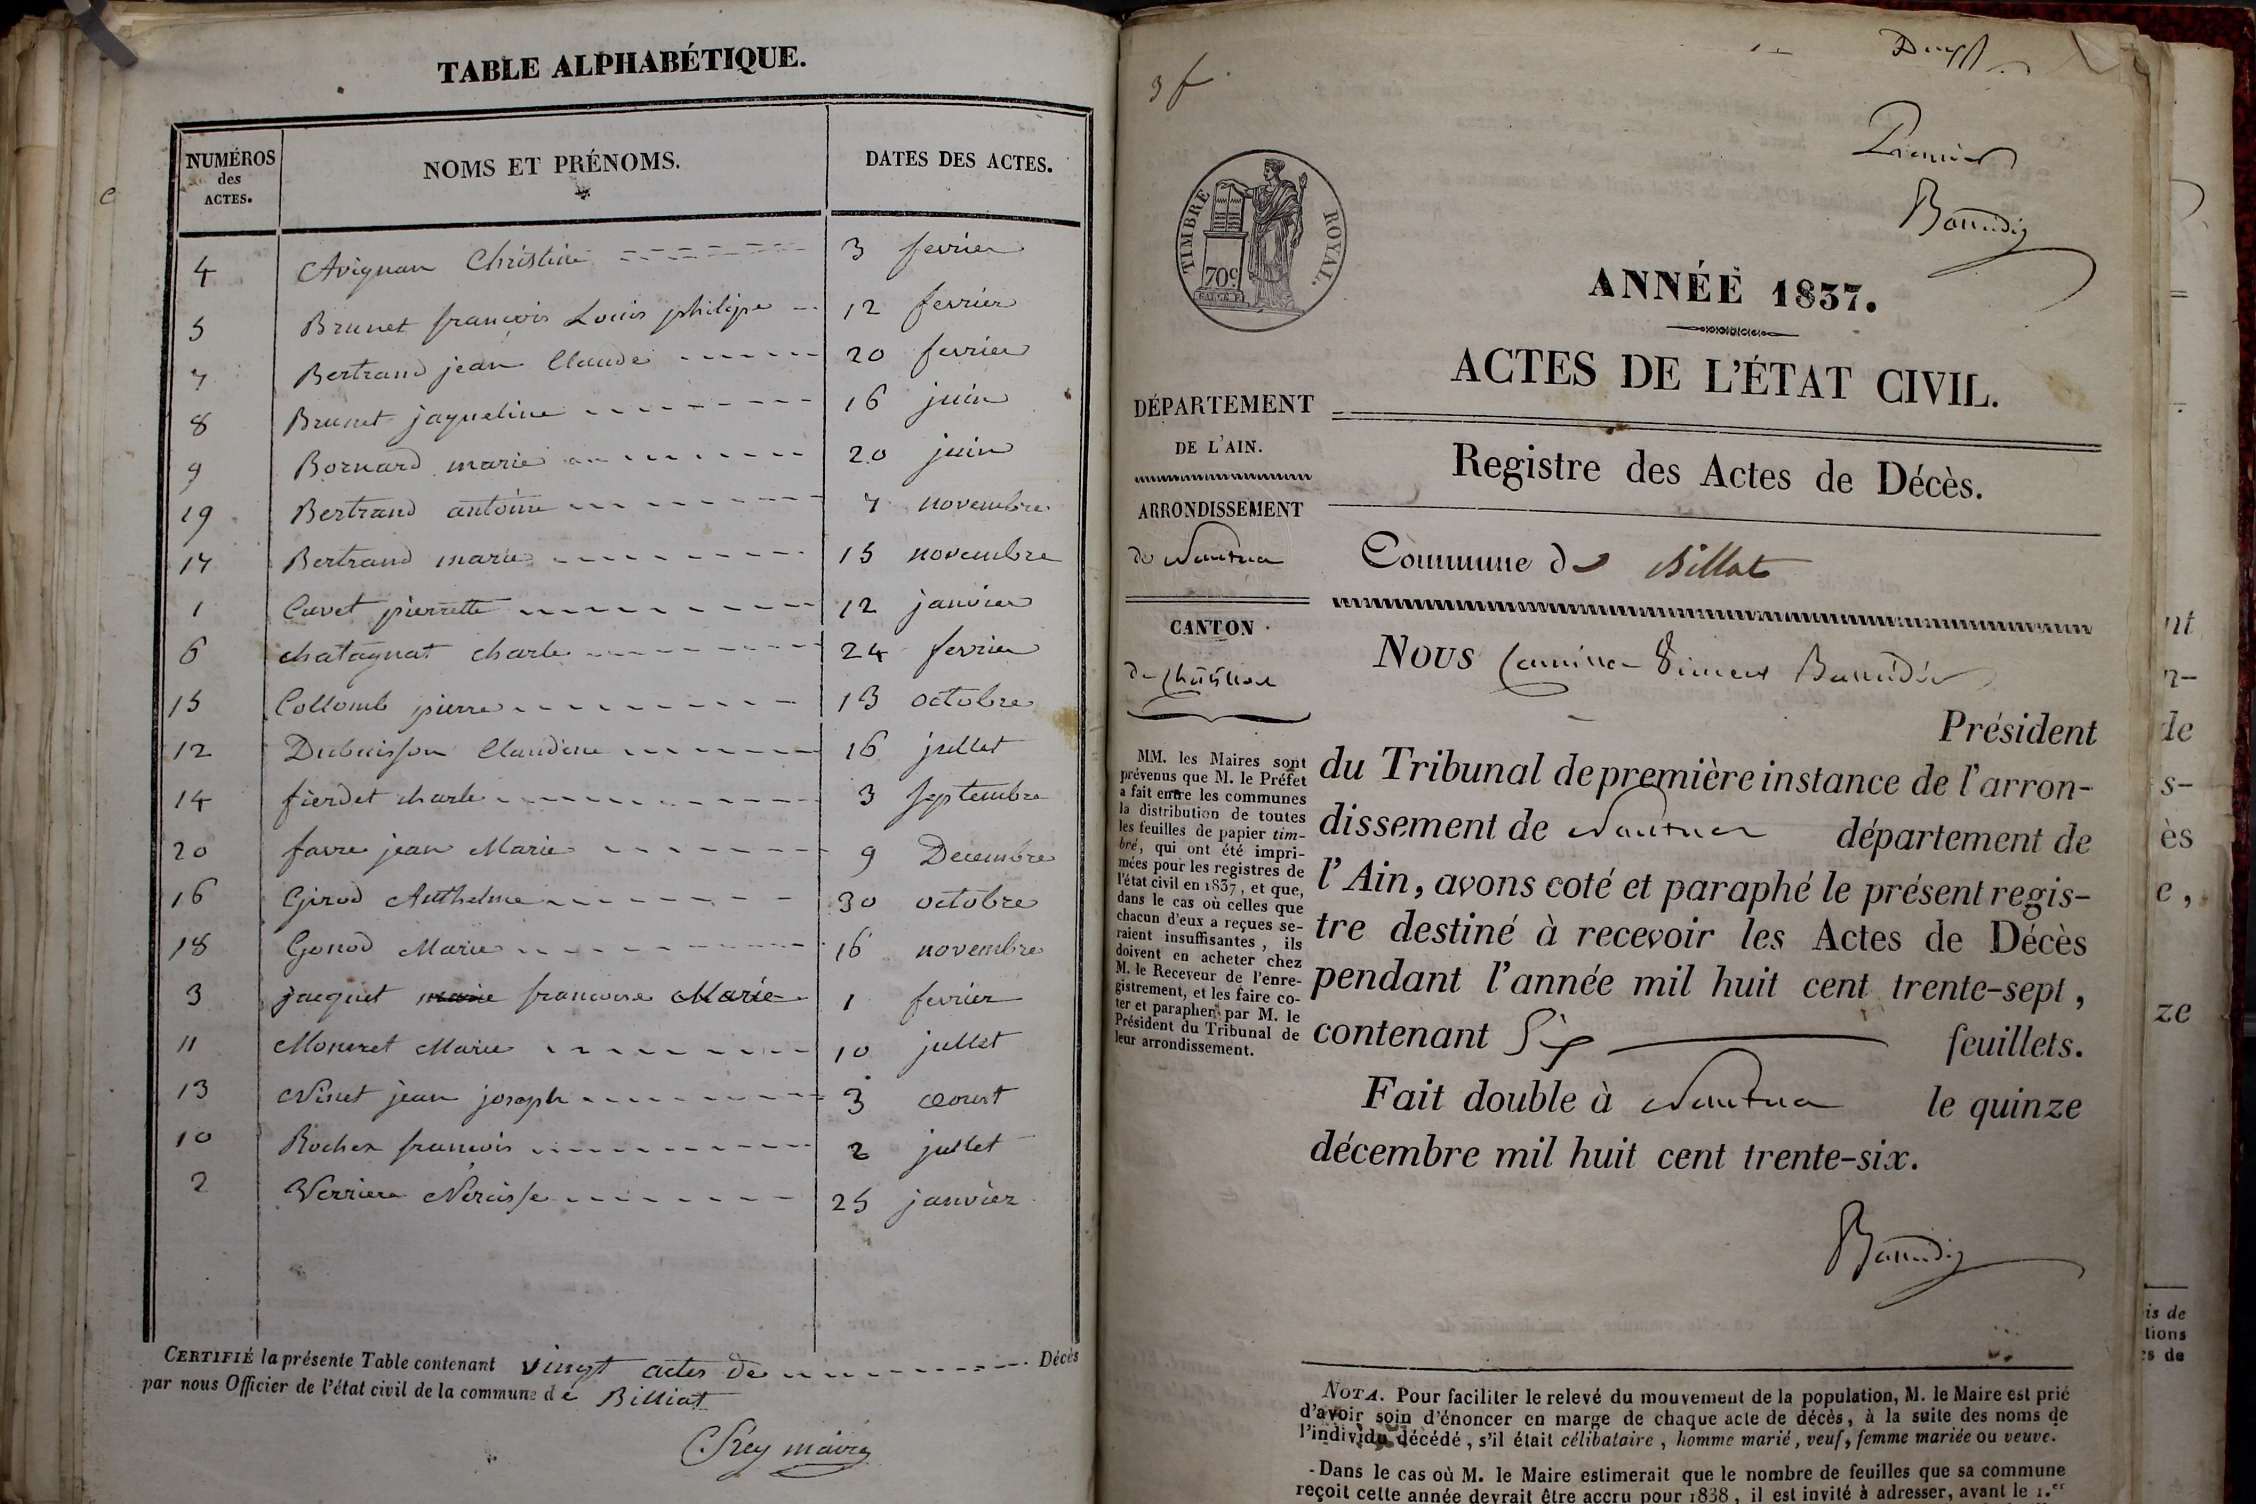 TABLE ALPHABÉTIQUE.
NUMÉROS des ACTES. NOMS ET PRÉNOMS. DATES DES ACTES.
4 Avignan Christine 3 fevrier
5 Brunet francois Louis philipe 12 fevrier
7 Bertrand jean Claude 20 fevrier
8 Brunet jaqueline 16 juin
9 Bornard marie 20 juin
19 Bertrand antoine 7 novembre
17 Bertrand marie 15 novembre
1 Cavet pierrette 12 janvier
6 chatagnat charle 24 fevrier
15 Collomb pierre 13 octobre
12 Dubuisson Claudine 16 jullet
14 fierdet charle 3 septembre
20 favre jean Marie 9 Decembre
16 Girod Anthelme 30 octobre
18 Gonod Marie 16 novembre
3 jacquet marie francoise Marie 1 fevrier
11 Moneret Marie 10 jullet
13 Ninet jean joseph 3 aoust
10 Rochex francois 2 jullet
2 Verriere Nercisse 25 janvier
CERTIFIÉ la présente Table contenant vingt actes de Décès
par nous Officier de l'état civil de la commune de Billiat
Frey maire
3 f
Premier
Baudin
TIMBRE ROYAL.
70c
ANNÉE 1837.
ACTES DE L'ÉTAT CIVIL.
DÉPARTEMENT
DE L'AIN.
Registre des Actes de Décès.
ARRONDISSEMENT
de Nantua
Commune de Billiat
CANTON
de Châtillon
Nous
Président
du Tribunal de première instance de l'arron-
dissement de Nantua département de
l'Ain, avons coté et paraphé le présent regis-
tre destiné à recevoir les Actes de Décès
pendant l'année mil huit cent trente-sept,
contenant Six feuillets.
Fait double à Nantua le quinze
décembre mil huit cent trente-six.
MM. les Maires sont
prévenus que M. le Préfet
a fait entre les communes
la distribution de toutes
les feuilles de papier tim-
bré, qui ont été impri-
mées pour les registres de
l'état civil en 1837, et que,
dans le cas où celles que
chacun d'eux a reçues se-
raient insuffisantes, ils
doivent en acheter chez
M. le Receveur de l'enre-
gistrement, et les faire co-
ter et parapher par M. le
Président du Tribunal de
leur arrondissement.
NOTA. Pour faciliter le relevé du mouvement de la population, M. le Maire est prié
d'avoir soin d'énoncer en marge de chaque acte de décès, à la suite des noms de
l'individu décédé, s'il était célibataire, homme marié, veuf, femme mariée ou veuve.
- Dans le cas où M. le Maire estimerait que le nombre de feuilles que sa commune
reçoit cette année devrait être accru pour 1838, il est invité à adresser, avant le 1.er